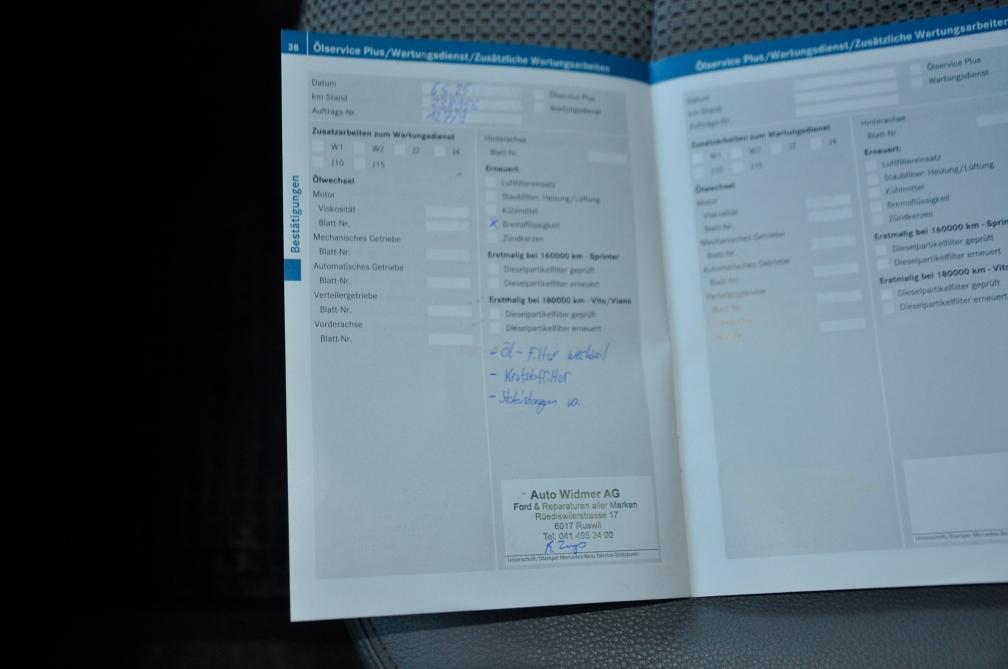 38 Ölservice Plus/Wartungsdienst/Zusätzliche Wartungsarbeiten
Datum 6.5.25
km-Stand
Auftrags-Nr. 12779
Ölservice Plus
Wartungsdienst
Zusatzarbeiten zum Wartungsdienst
W1 W2 J2 J4
J10 J15
Ölwechsel
Motor
Viskosität
Blatt-Nr.
Mechanisches Getriebe
Blatt-Nr.
Automatisches Getriebe
Blatt-Nr.
Verteilergetriebe
Blatt-Nr.
Vorderachse
Blatt-Nr.
Hinterachse
Blatt-Nr.
Erneuert:
Luftfiltereinsatz
Staubfilter: Heizung/Lüftung
Kühlmittel
x Bremsflüssigkeit
Zündkerzen
Erstmalig bei 160000 km - Sprinter
Dieselpartikelfilter geprüft
Dieselpartikelfilter erneuert
Erstmalig bei 180000 km - Vito/Viano
Dieselpartikelfilter geprüft
Dieselpartikelfilter erneuert
- Öl - Filter wechsel
-
-
Auto Widmer AG
Ford & Reparaturen aller Marken
Rüediswilerstrasse 17
6017 Ruswil
Tel. 041 495 34 00
Unterschrift/Stempel Mercedes-Benz Service-Stützpunkt
Bestätigungen
Ölservice Plus/Wartungsdienst/Zusätzliche Wartungsarbeiten
Datum
km-Stand
Auftrags-Nr.
Ölservice Plus
Wartungsdienst
Zusatzarbeiten zum Wartungsdienst
W1 W2 J2 J4
J10 J15
Ölwechsel
Motor
Viskosität
Blatt-Nr.
Mechanisches Getriebe
Blatt-Nr.
Automatisches Getriebe
Blatt-Nr.
Verteilergetriebe
Blatt-Nr.
Hinterachse
Blatt-Nr.
Erneuert:
Luftfiltereinsatz
Staubfilter: Heizung/Lüftung
Kühlmittel
Bremsflüssigkeit
Zündkerzen
Erstmalig bei 160000 km - Sprin
Dieselpartikelfilter geprüft
Dieselpartikelfilter erneuert
Erstmalig bei 180000 km - Vito
Dieselpartikelfilter geprüft
Dieselpartikelfilter erneuert
Unterschrift/Stempel Mercedes-Benz